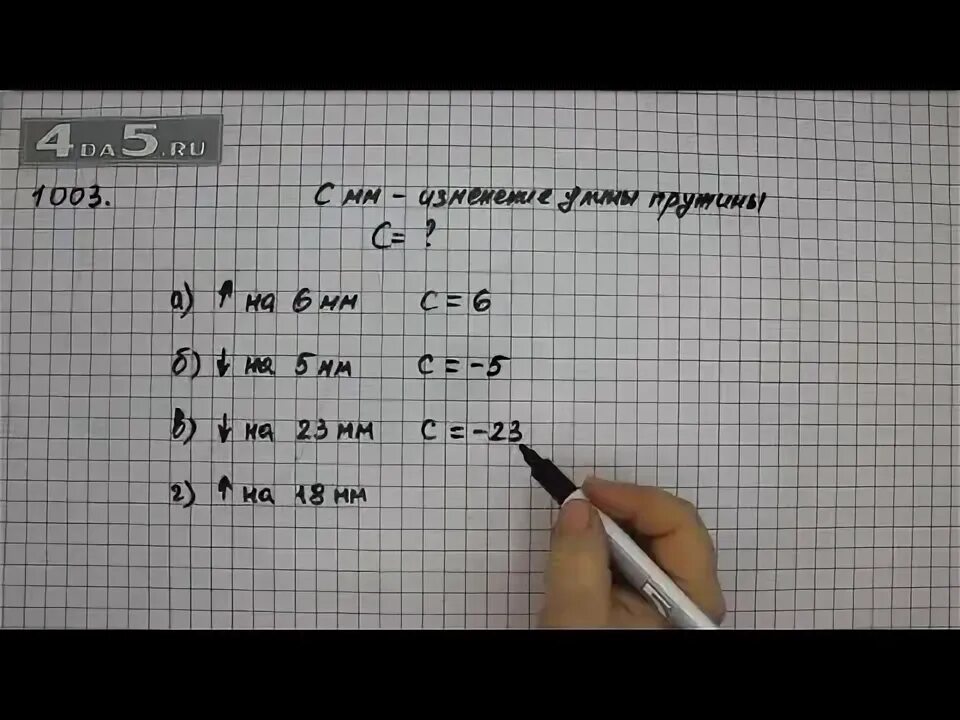 4DA5.RU
1003. С мм - изменение длины пружины
С= ?
а) ↑ на 6 мм С = 6
б) ↓ на 5 мм С = -5
в) ↓ на 23 мм С = -23
г) ↑ на 18 мм